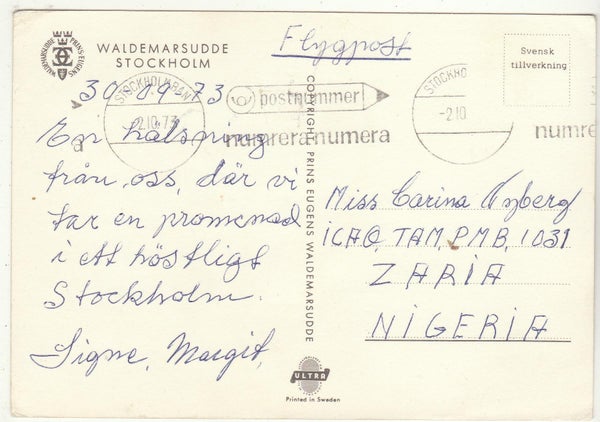 WALDEMARSUDDE
STOCKHOLM
PRINS EUGENS WALDEMARSUDDE
Flygpost
Svensk
tillverkning
30 09 73
STOCKHOLM BAN
-2.10.73
postnummer
numrera numera
STOCKHO
-2.10
numre
a
En hälsning
från oss, där vi
tar en promenad
i ett höstligt
Stockholm.
Signe, Margit,
COPYRIGHT PRINS EUGENS WALDEMARSUDDE
Miss Carina Nyberg
ICAO, TAM, P.M.B. 1031
ZARIA
NIGERIA
ULTRA
Printed in Sweden